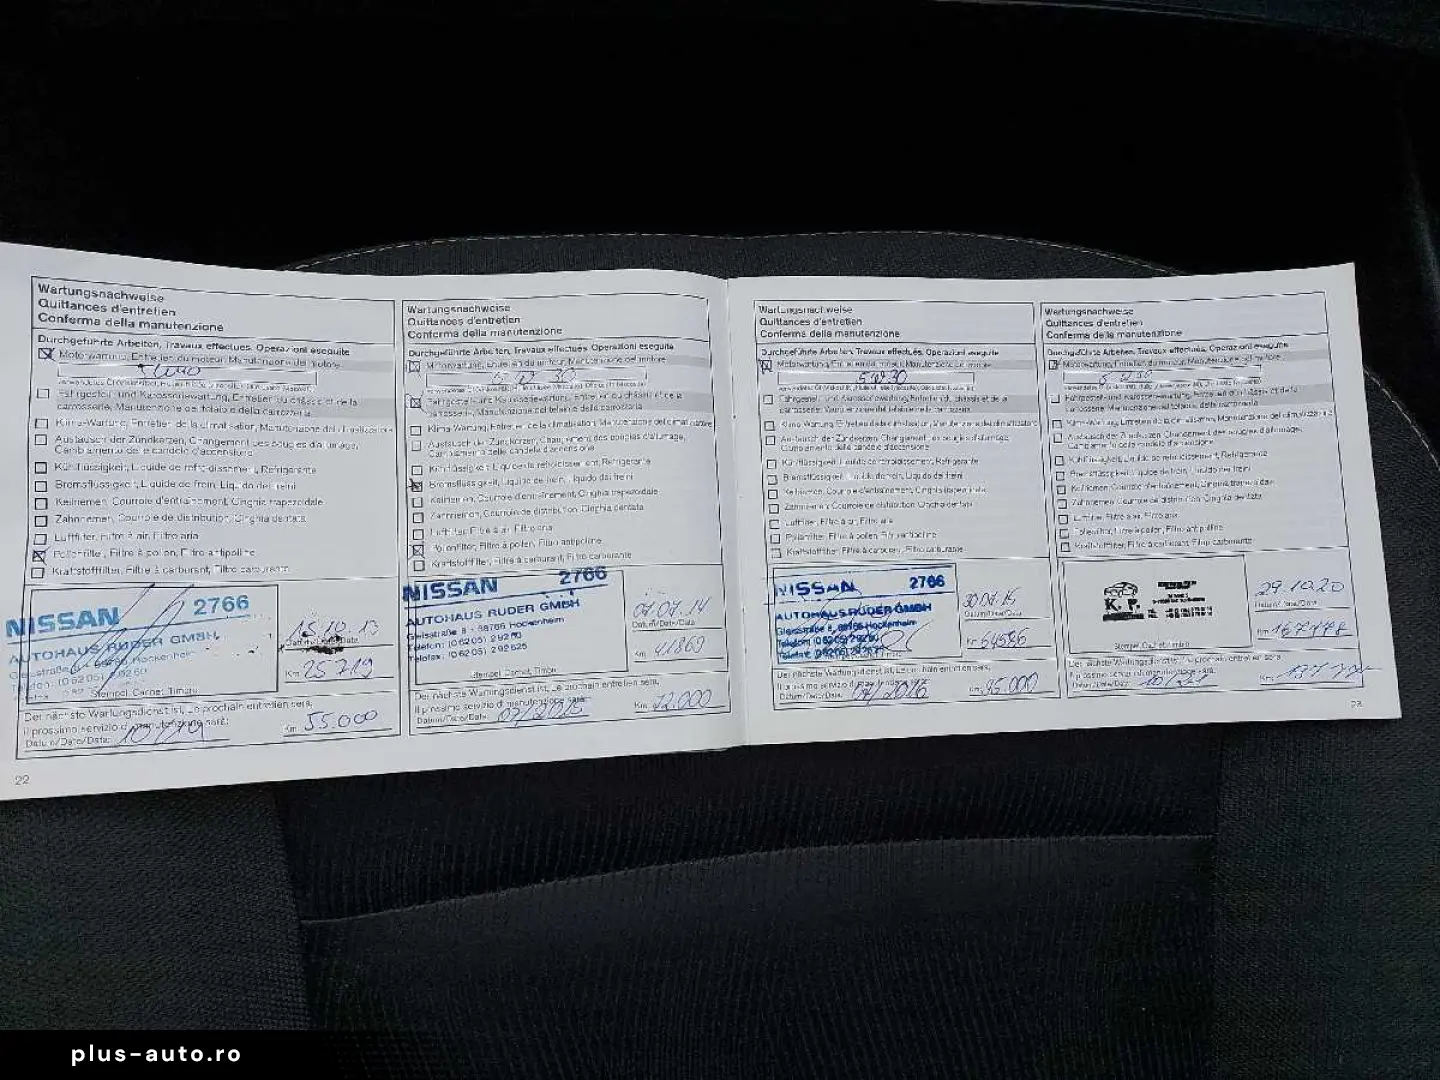 Wartungsnachweise
Quittances d'entretien
Conferma della manutenzione
Durchgeführte Arbeiten, Travaux effectués, Operazioni eseguite
Motorwartung, Entretien du moteur, Manutenzione del motore
Fahrgestell- und Karosseriewartung, Entretien du châssis et de la
carrosserie, Manutenzione del telaio e della carrozzeria
Klima-Wartung, Entretien de la climatisation, Manutenzione del climatizzatore
Austausch der Zündkerzen, Changement des bougies d'allumage,
Cambiamento delle candele d'accensione
Kühlflüssigkeit, Liquide de refroidissement, Refrigerante
Bremsflüssigkeit, Liquide de frein, Liquido dei freni
Keilriemen, Courroie d'entraînement, Cinghia trapezoidale
Zahnriemen, Courroie de distribution, Cinghia dentata
Luftfilter, Filtre à air, Filtro aria
Pollenfilter, Filtre à pollen, Filtro antipolline
Kraftstofffilter, Filtre à carburant, Filtro carburante
NISSAN 2766
AUTOHAUS RUDER GMBH
15.10.13
Km 25719
Stempel, Carnet, Timbro
Der nächste Wartungsdienst ist, Le prochain entretien sera,
Il prossimo servizio di manutenzione sarà:
Datum/Date/Data:
Km 55.000
22
Wartungsnachweise
Quittances d'entretien
Conferma della manutenzione
Durchgeführte Arbeiten, Travaux effectués, Operazioni eseguite
Motorwartung, Entretien du moteur, Manutenzione del motore
Fahrgestell- und Karosseriewartung, Entretien du châssis et de la
carrosserie, Manutenzione del telaio e della carrozzeria
Klima-Wartung, Entretien de la climatisation, Manutenzione del climatizzatore
Austausch der Zündkerzen, Changement des bougies d'allumage,
Cambiamento delle candele d'accensione
Kühlflüssigkeit, Liquide de refroidissement, Refrigerante
Bremsflüssigkeit, Liquide de frein, Liquido dei freni
Keilriemen, Courroie d'entraînement, Cinghia trapezoidale
Zahnriemen, Courroie de distribution, Cinghia dentata
Luftfilter, Filtre à air, Filtro aria
Pollenfilter, Filtre à pollen, Filtro antipolline
Kraftstofffilter, Filtre à carburant, Filtro carburante
NISSAN 2766
AUTOHAUS RUDER GMBH
Gleisstraße 8 - 68766 Hockenheim
Telefon: (06205) 29260
Telefax: (06205) 292625
07.07.14
Datum/Date/Data
Km 41869
Stempel, Carnet, Timbro
Der nächste Wartungsdienst ist, Le prochain entretien sera,
Il prossimo servizio di manutenzione sarà:
Datum/Date/Data: 07/2015
Km 72.000
Wartungsnachweise
Quittances d'entretien
Conferma della manutenzione
Durchgeführte Arbeiten, Travaux effectués, Operazioni eseguite
Motorwartung, Entretien du moteur, Manutenzione del motore
5W30
Fahrgestell- und Karosseriewartung, Entretien du châssis et de la
carrosserie, Manutenzione del telaio e della carrozzeria
Klima-Wartung, Entretien de la climatisation, Manutenzione del climatizzatore
Austausch der Zündkerzen, Changement des bougies d'allumage,
Cambiamento delle candele d'accensione
Kühlflüssigkeit, Liquide de refroidissement, Refrigerante
Bremsflüssigkeit, Liquide de frein, Liquido dei freni
Keilriemen, Courroie d'entraînement, Cinghia trapezoidale
Zahnriemen, Courroie de distribution, Cinghia dentata
Luftfilter, Filtre à air, Filtro aria
Pollenfilter, Filtre à pollen, Filtro antipolline
Kraftstofffilter, Filtre à carburant, Filtro carburante
NISSAN 2766
AUTOHAUS RUDER GMBH
Gleisstraße 8, 68766 Hockenheim
Telefon: (06205) 29260
Datum/Date/Data
Km
Der nächste Wartungsdienst ist, Le prochain entretien sera,
Il prossimo servizio di manutenzione sarà:
Datum/Date/Data: 07/2016
Km 95.000
Wartungsnachweise
Quittances d'entretien
Conferma della manutenzione
Durchgeführte Arbeiten, Travaux effectués, Operazioni eseguite
Motorwartung, Entretien du moteur, Manutenzione del motore
Fahrgestell- und Karosseriewartung, Entretien du châssis et de la
carrosserie, Manutenzione del telaio e della carrozzeria
Klima-Wartung, Entretien de la climatisation, Manutenzione del climatizzatore
Austausch der Zündkerzen, Changement des bougies d'allumage,
Cambiamento delle candele d'accensione
Kühlflüssigkeit, Liquide de refroidissement, Refrigerante
Bremsflüssigkeit, Liquide de frein, Liquido dei freni
Keilriemen, Courroie d'entraînement, Cinghia trapezoidale
Zahnriemen, Courroie de distribution, Cinghia dentata
Luftfilter, Filtre à air, Filtro aria
Pollenfilter, Filtre à pollen, Filtro antipolline
Kraftstofffilter, Filtre à carburant, Filtro carburante
K. P.
29.10.20
Datum/Date/Data
Km
Stempel, Carnet, Timbro
Der nächste Wartungsdienst ist, Le prochain entretien sera,
Il prossimo servizio di manutenzione sarà:
Datum/Date/Data:
Km
23
plus-auto.ro